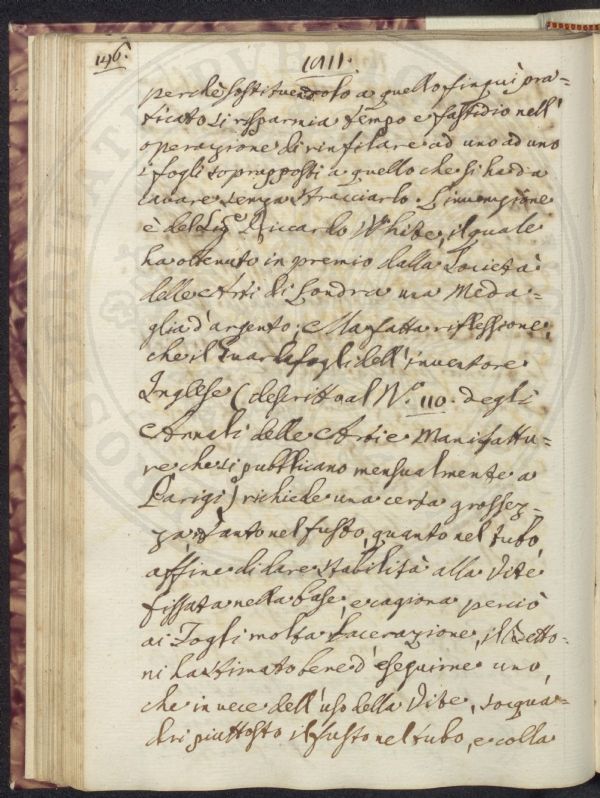 146.
1911.
perche sostituendolo a quello finquì pra=
ticato si risparmia tempo e fastidio nell'
operazione di rinfilare ad uno ad uno
i fogli soprapposti a quello che si ha da
cavare senza stracciarlo. L'invenzione
è del Sig.e Riccardo White, il quale
ha ottenuto in premio dalla Società
delle Arti di Londra una Meda=
glia d'argento; Ma fatta riflessione,
che il Guardafogli dell'inventore
Inglese (descritto al N.º 110. degli
Annali delle Arti e Manifattu=
re che si pubblicano mensualmente a
Parigi) richiede una certa grossez=
za tanto nel fusto, quanto nel tubo
affine di dare stabilità alla Vite
fissata nella base, e cagiona perciò
ai Fogli molta lacerazione, il
ni ha stimato bene d'eseguirne uno,
che in vece dell'uso della Vite,
piuttosto il fusto nel tubo, e colla